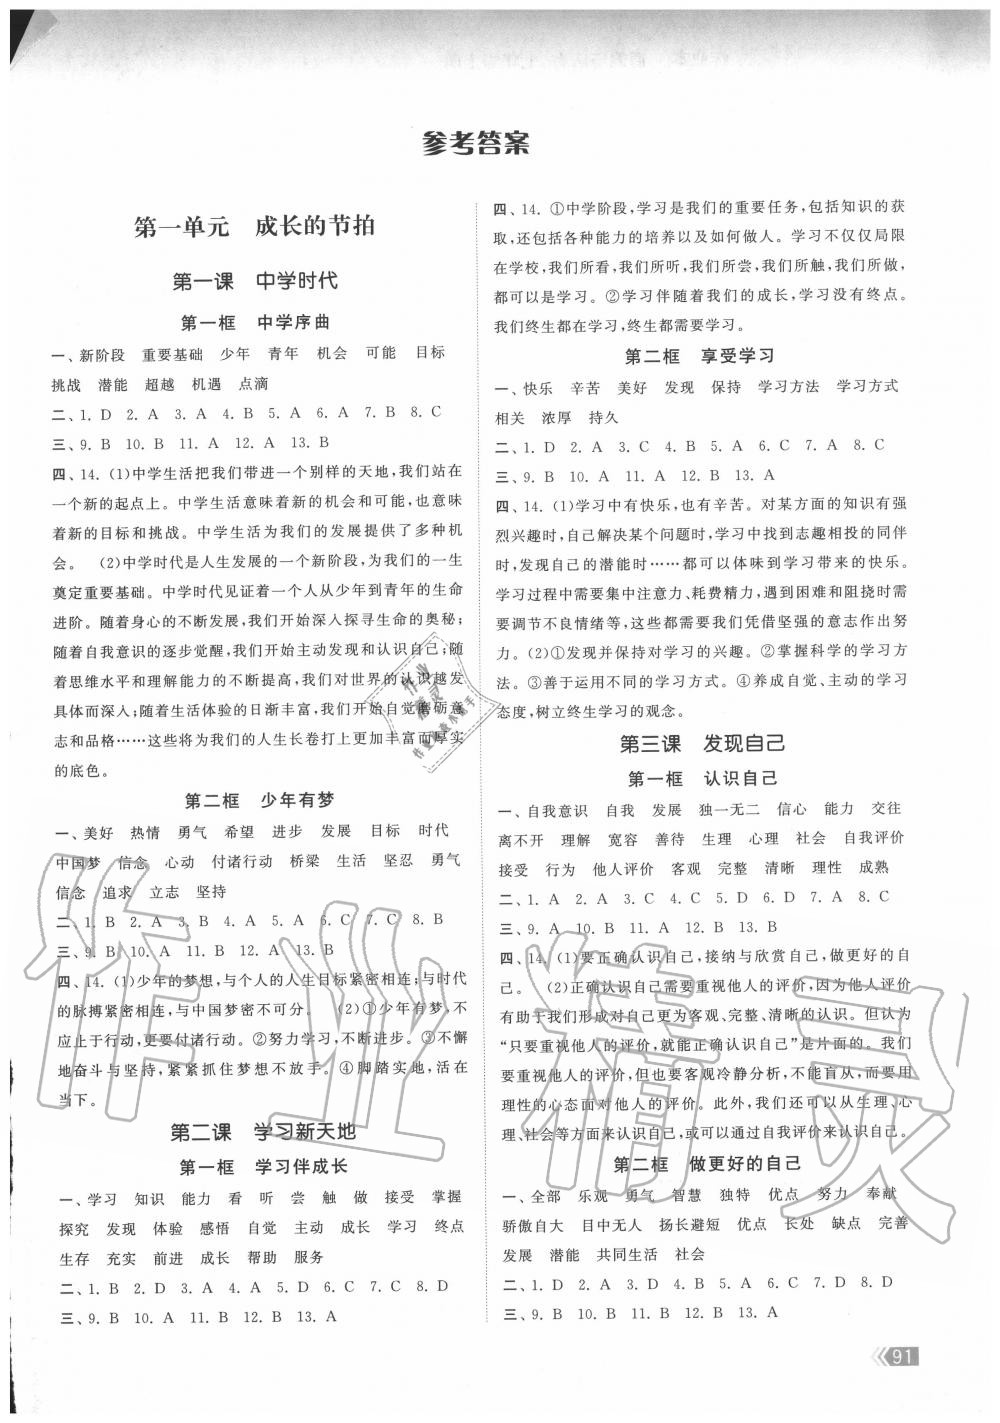 参考答案
第一单元 成长的节拍
第一课 中学时代
第一框 中学序曲
一、新阶段 重要基础 少年 青年 机会 可能 目标
挑战 潜能 超越 机遇 点滴
二、1. D 2. A 3. A 4. B 5. A 6. A 7. B 8. C
三、9. B 10. B 11. A 12. A 13. B
四、14. (1)中学生活把我们带进一个别样的天地,我们站在
一个新的起点上。中学生活意味着新的机会和可能,也意味
着新的目标和挑战。中学生活为我们的发展提供了多种机
会。 (2)中学时代是人生发展的一个新阶段,为我们的一生
奠定重要基础。中学时代见证着一个人从少年到青年的生命
进阶。随着身心的不断发展,我们开始深入探寻生命的奥秘;
随着自我意识的逐步觉醒,我们开始主动发现和认识自己;随
着思维水平和理解能力的不断提高,我们对世界的认识越发
具体而深入;随着生活体验的日渐丰富,我们开始自觉磨砺意
志和品格……这些将为我们的人生长卷打上更加丰富而厚实
的底色。
第二框 少年有梦
一、美好 热情 勇气 希望 进步 发展 目标 时代
中国梦 信念 心动 付诸行动 桥梁 生活 坚忍 勇气
信念 追求 立志 坚持
二、1. B 2. A 3. B 4. A 5. A 6. C 7. C 8. B
三、9. B 10. A 11. B 12. A 13. B
四、14. (1)少年的梦想,与个人的人生目标紧密相连;与时代
的脉搏紧密相连,与中国梦密不可分。 (2)①少年有梦,不
应止于行动,更要付诸行动。②努力学习,不断进步。③不懈
地奋斗与坚持,紧紧抓住梦想不放手。④脚踏实地,活在
当下。
第二课 学习新天地
第一框 学习伴成长
一、学习 知识 能力 看 听 尝 触 做 接受 掌握
探究 发现 体验 感悟 自觉 主动 成长 学习 终点
生存 充实 前进 成长 帮助 服务
二、1. B 2. D 3. C 4. A 5. B 6. C 7. C 8. D
三、9. B 10. A 11. B 12. B 13. A
四、14. ①中学阶段,学习是我们的重要任务,包括知识的获
取,还包括各种能力的培养以及如何做人。学习不仅仅局限
在学校,我们所看,我们所听,我们所尝,我们所触,我们所做,
都可以是学习。②学习伴随着我们的成长,学习没有终点。
我们终生都在学习,终生都需要学习。
第二框 享受学习
一、快乐 辛苦 美好 发现 保持 学习方法 学习方式
相关 浓厚 持久
二、1. D 2. A 3. C 4. B 5. A 6. C 7. A 8. C
三、9. B 10. A 11. A 12. B 13. A
四、14. (1)学习中有快乐,也有辛苦。对某方面的知识有强
烈兴趣时,自己解决某个问题时,学习中找到志趣相投的同伴
时,发现自己的潜能时……都可以体味到学习带来的快乐。
学习过程中需要集中注意力、耗费精力,遇到困难和阻挠时需
要调节不良情绪等,这些都需要我们凭借坚强的意志作出努
力。(2)①发现并保持对学习的兴趣。②掌握科学的学习方
法。③善于运用不同的学习方式。④养成自觉、主动的学习
态度,树立终生学习的观念。
第三课 发现自己
第一框 认识自己
一、自我意识 自我 发展 独一无二 信心 能力 交往
离不开 理解 宽容 善待 生理 心理 社会 自我评价
接受 行为 他人评价 客观 完整 清晰 理性 成熟
二、1. A 2. D 3. C 4. C 5. D 6. D 7. A 8. C
三、9. A 10. B 11. A 12. B 13. B
四、14. (1)要正确认识自己,接纳与欣赏自己,做更好的自
己。 (2)正确认识自己需要重视他人的评价,因为他人评价
有助于我们形成对自己更为客观、完整、清晰的认识。但认为
“只要重视他人的评价,就能正确认识自己”是片面的。我们
要重视他人的评价,但也要客观冷静分析,不能盲从,而要用
理性的心态面对他人的评价。此外,我们还可以从生理、心
理、社会等方面来认识自己,或可以通过自我评价来认识自己。
第二框 做更好的自己
一、全部 乐观 勇气 智慧 独特 优点 努力 奉献
骄傲自大 目中无人 扬长避短 优点 长处 缺点 完善
发展 潜能 共同生活 社会
二、1. D 2. A 3. D 4. B 5. A 6. C 7. D 8. D
三、9. B 10. B 11. B 12. B 13. A
91
作业精灵
作业精灵
作业检查小能手